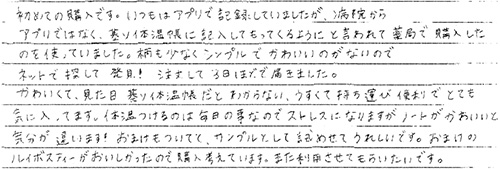 初めての購入です。いつもはアプリで記録していましたが、病院から
アプリではなく、基礎体温帳に記入してもってくるようにと言われて薬局で購入した
のを使っていました。柄も少なくシンプルでかわいいのがないので
ネットで探して発見！注文して3日ほどで届きました。
かわいくて、見た目 基礎体温帳だとわからない、うすくて持ち運び便利でとても
気に入ってます。体温つけるのは毎日の事なのでストレスになりますがノートがかわいいと
気分が違います！おまけもついてて、サンプルとして試めせてうれしいです。おまけの
ルイボスティーがおいしかったので購入考えています。また利用させてもらいたいです。